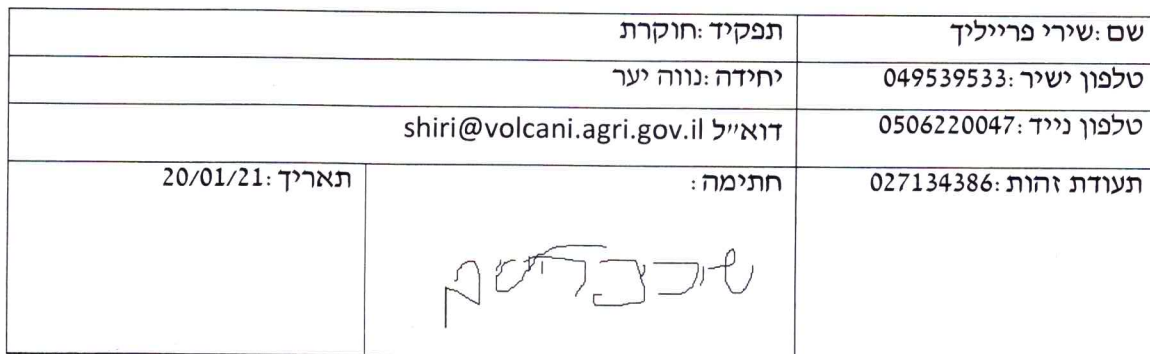 שם :שירי פרייליך תפקיד :חוקרת
טלפון ישיר :049539533 יחידה :נווה יער
טלפון נייד :0506220047 דוא״ל shiri@volcani.agri.gov.il
תעודת זהות :027134386 חתימה : תאריך :20/01/21